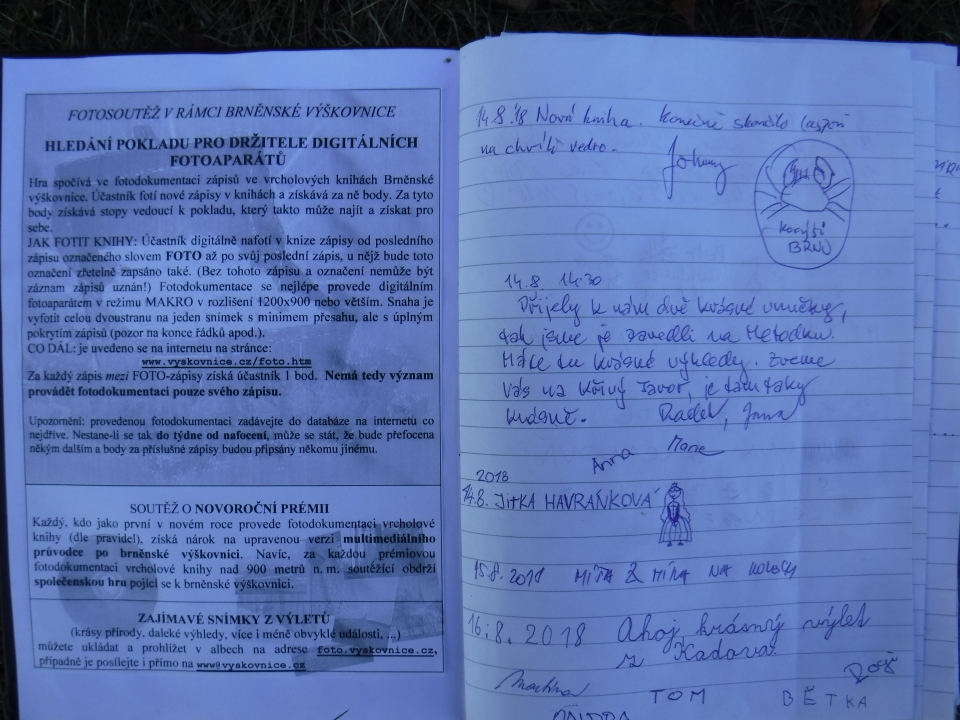 FOTOSOUTĚŽ V RÁMCI BRNĚNSKÉ VÝŠKOVNICE
HLEDÁNÍ POKLADU PRO DRŽITELE DIGITÁLNÍCH
FOTOAPARÁTŮ
Hra spočívá ve fotodokumentaci zápisů ve vrcholových knihách Brněnské
výškovnice. Účastník fotí nové zápisy v knihách a získává za ně body. Za tyto
body získává stopy vedoucí k pokladu, který takto může najít a získat pro
sebe.
JAK FOTIT KNIHY: Účastník digitálně nafotí v knize zápisy od posledního
zápisu označeného slovem FOTO až po svůj poslední zápis, u nějž bude toto
označení zřetelně zapsáno také. (Bez tohoto zápisu a označení nemůže být
záznam zápisů uznán!) Fotodokumentace se nejlépe provede digitálním
fotoaparátem v režimu MAKRO v rozlišení 1200x900 nebo větším. Snaha je
vyfotit celou dvoustranu na jeden snímek s minimem přesahu, ale s úplným
pokrytím zápisů (pozor na konce řádků apod.).
CO DÁL: je uvedeno se na internetu na stránce:
www.vyskovnice.cz/foto.htm
Za každý zápis mezi FOTO-zápisy získá účastník 1 bod. Nemá tedy význam
provádět fotodokumentaci pouze svého zápisu.
Upozornění: provedenou fotodokumentaci zadávejte do databáze na internetu co
nejdříve. Nestane-li se tak do týdne od nafocení, může se stát, že bude přefocena
někým dalším a body za příslušné zápisy budou připsány někomu jinému.
SOUTĚŽ O NOVOROČNÍ PRÉMII
Každý, kdo jako první v novém roce provede fotodokumentaci vrcholové
knihy (dle pravidel), získá nárok na upravenou verzi multimediálního
průvodce po brněnské výškovnici. Navíc, za každou prémiovou
fotodokumentaci vrcholové knihy nad 900 metrů n. m. soutěžící obdrží
společenskou hru pojící se k brněnské výškovnici.
ZAJÍMAVÉ SNÍMKY Z VÝLETŮ
(krásy přírody, daleké výhledy, více i méně obvyklé události, ...)
můžete ukládat a prohlížet v albech na adrese foto.vyskovnice.cz,
případně je posílejte i přímo na www@vyskovnice.cz
14.8.'18 Nová kniha. Konečně skončilo (aspoň
na chvíli) vedro.
Johnny
BRNO
14.8. 14:30
Přijely k nám dvě krásné vnučky,
tak jsme je zavedli na Metodku.
Máte tu krásné výhledy. Zveme
Vás na Křivý Javor, je tam taky
krásně. Radek, Jana
Anna Marie
2018
14.8. JITKA HAVRÁNKOVÁ
15.8.2018 MÍŤA & MÍRA NA KOLECH
16.8.2018 Ahoj, krásný výlet
z Kadova
Martina TOM BĚTKA